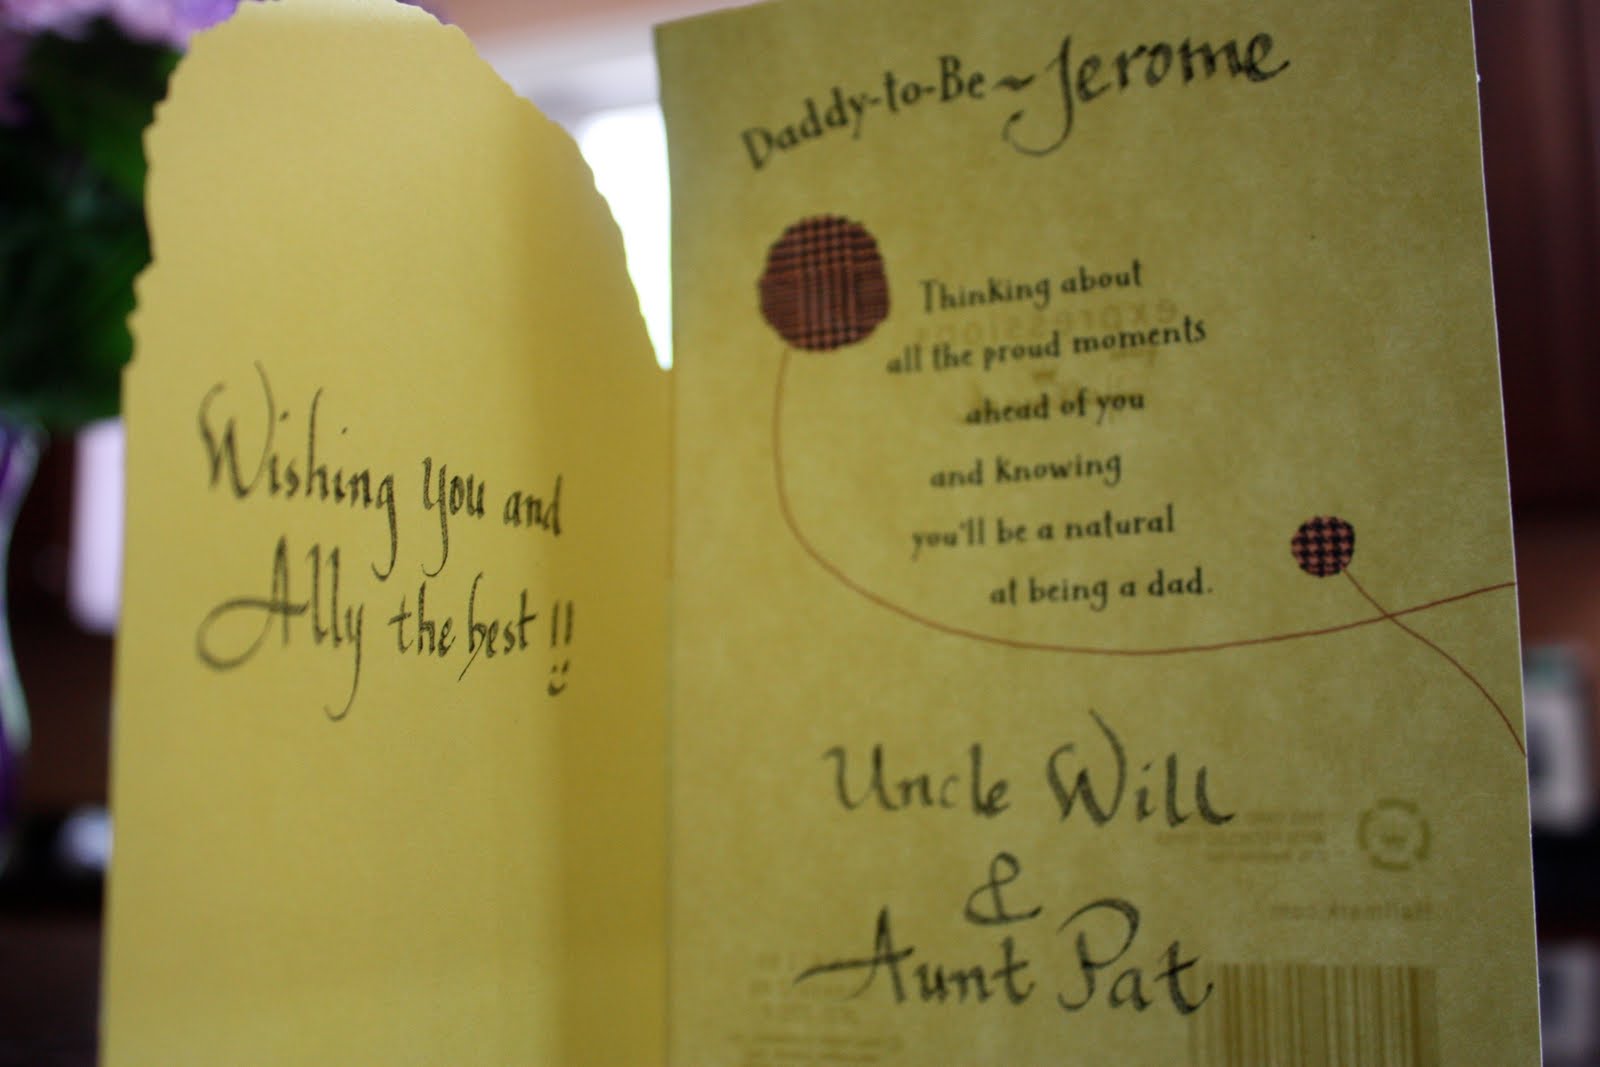 Wishing you and
Ally the best !!
Daddy-to-Be ~ Jerome
Thinking about
all the proud moments
ahead of you
and knowing
you'll be a natural
at being a dad.
Uncle Will
&
Aunt Pat
expressions
Hallmark.com